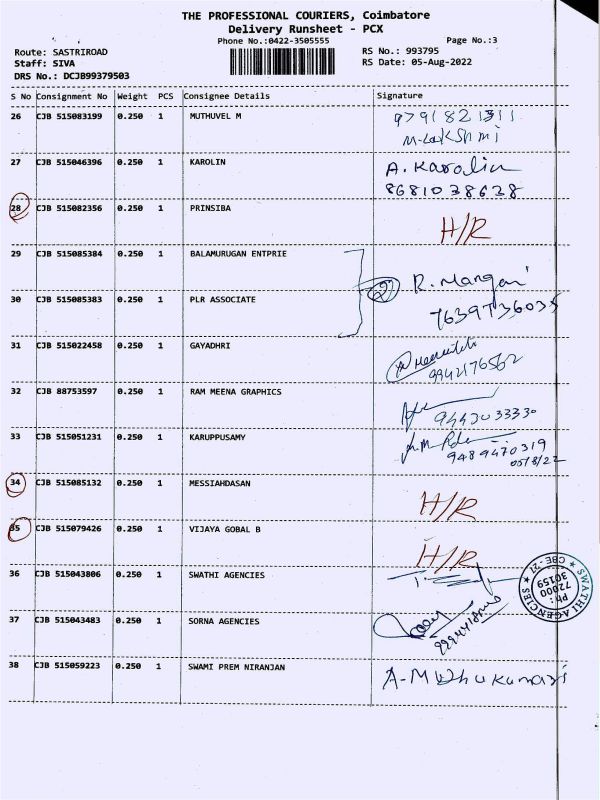 THE PROFESSIONAL COURIERS, Coimbatore
Delivery Runsheet - PCX
Phone No.:0422-3505555 Page No.:3
Route: SASTRIROAD RS No.: 993795
Staff: SIVA RS Date: 05-Aug-2022
DRS No.: DCJB99379503
S No Consignment No Weight PCS Consignee Details Signature
26 CJB 515083199 0.250 1 MUTHUVEL M 9791821311
M-Lakshmi
27 CJB 515046396 0.250 1 KAROLIN A. Karolin
8681038638
28 CJB 515082356 0.250 1 PRINSIBA H/R
29 CJB 515085384 0.250 1 BALAMURUGAN ENTPRIE R. Mangai
30 CJB 515085383 0.250 1 PLR ASSOCIATE (2) 7639736035
31 CJB 515022458 0.250 1 GAYADHRI
9942176562
32 CJB 88753597 0.250 1 RAM MEENA GRAPHICS 9443033330
33 CJB 515051231 0.250 1 KARUPPUSAMY 9489470319
05/8/22
34 CJB 515085132 0.250 1 MESSIAHDASAN H/R
35 CJB 515079426 0.250 1 VIJAYA GOBAL B H/R
36 CJB 515043806 0.250 1 SWATHI AGENCIES
★ SWATHI AGENCIES ★ CBE - 21
Ph :
72000
30159
37 CJB 515043483 0.250 1 SORNA AGENCIES
38 CJB 515059223 0.250 1 SWAMI PREM NIRANJAN A-Muthukumari